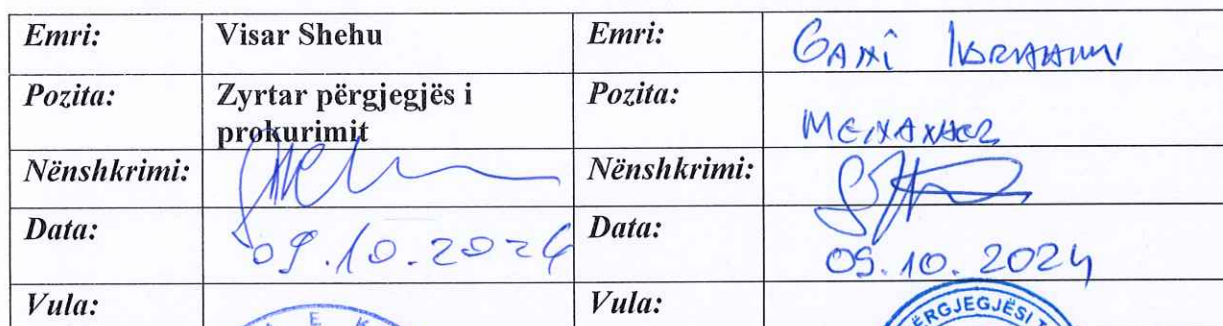 Emri: Visar Shehu Emri: Gani Ibrahimi
Pozita: Zyrtar përgjegjës i prokurimit Pozita: Menaxher
Nënshkrimi: Nënshkrimi:
Data: 09.10.2024 Data: 09.10.2024
Vula: Vula:
E K
ËRGJEGJËSI